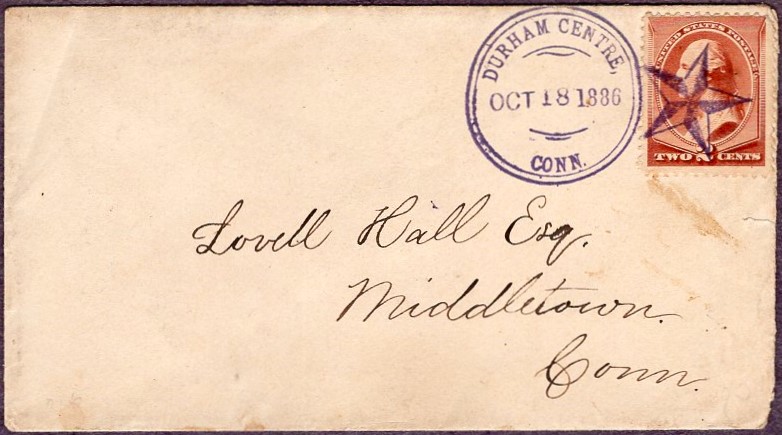 DURHAM CENTRE,
OCT 18 1886
CONN.
UNITED STATES POSTAGE
TWO 2 CENTS
Lovell Hall Esq.
Middletown.
Conn.